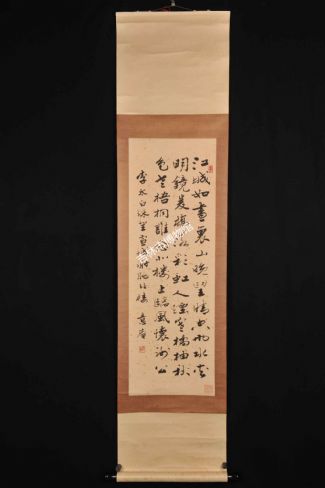 江城如畫裏山晚望晴空兩水夾
明鏡雙橋落彩虹人煙寒橘柚秋
色老梧桐誰念北樓上臨風懷謝公
李太白登宣城謝朓北樓
博物馆